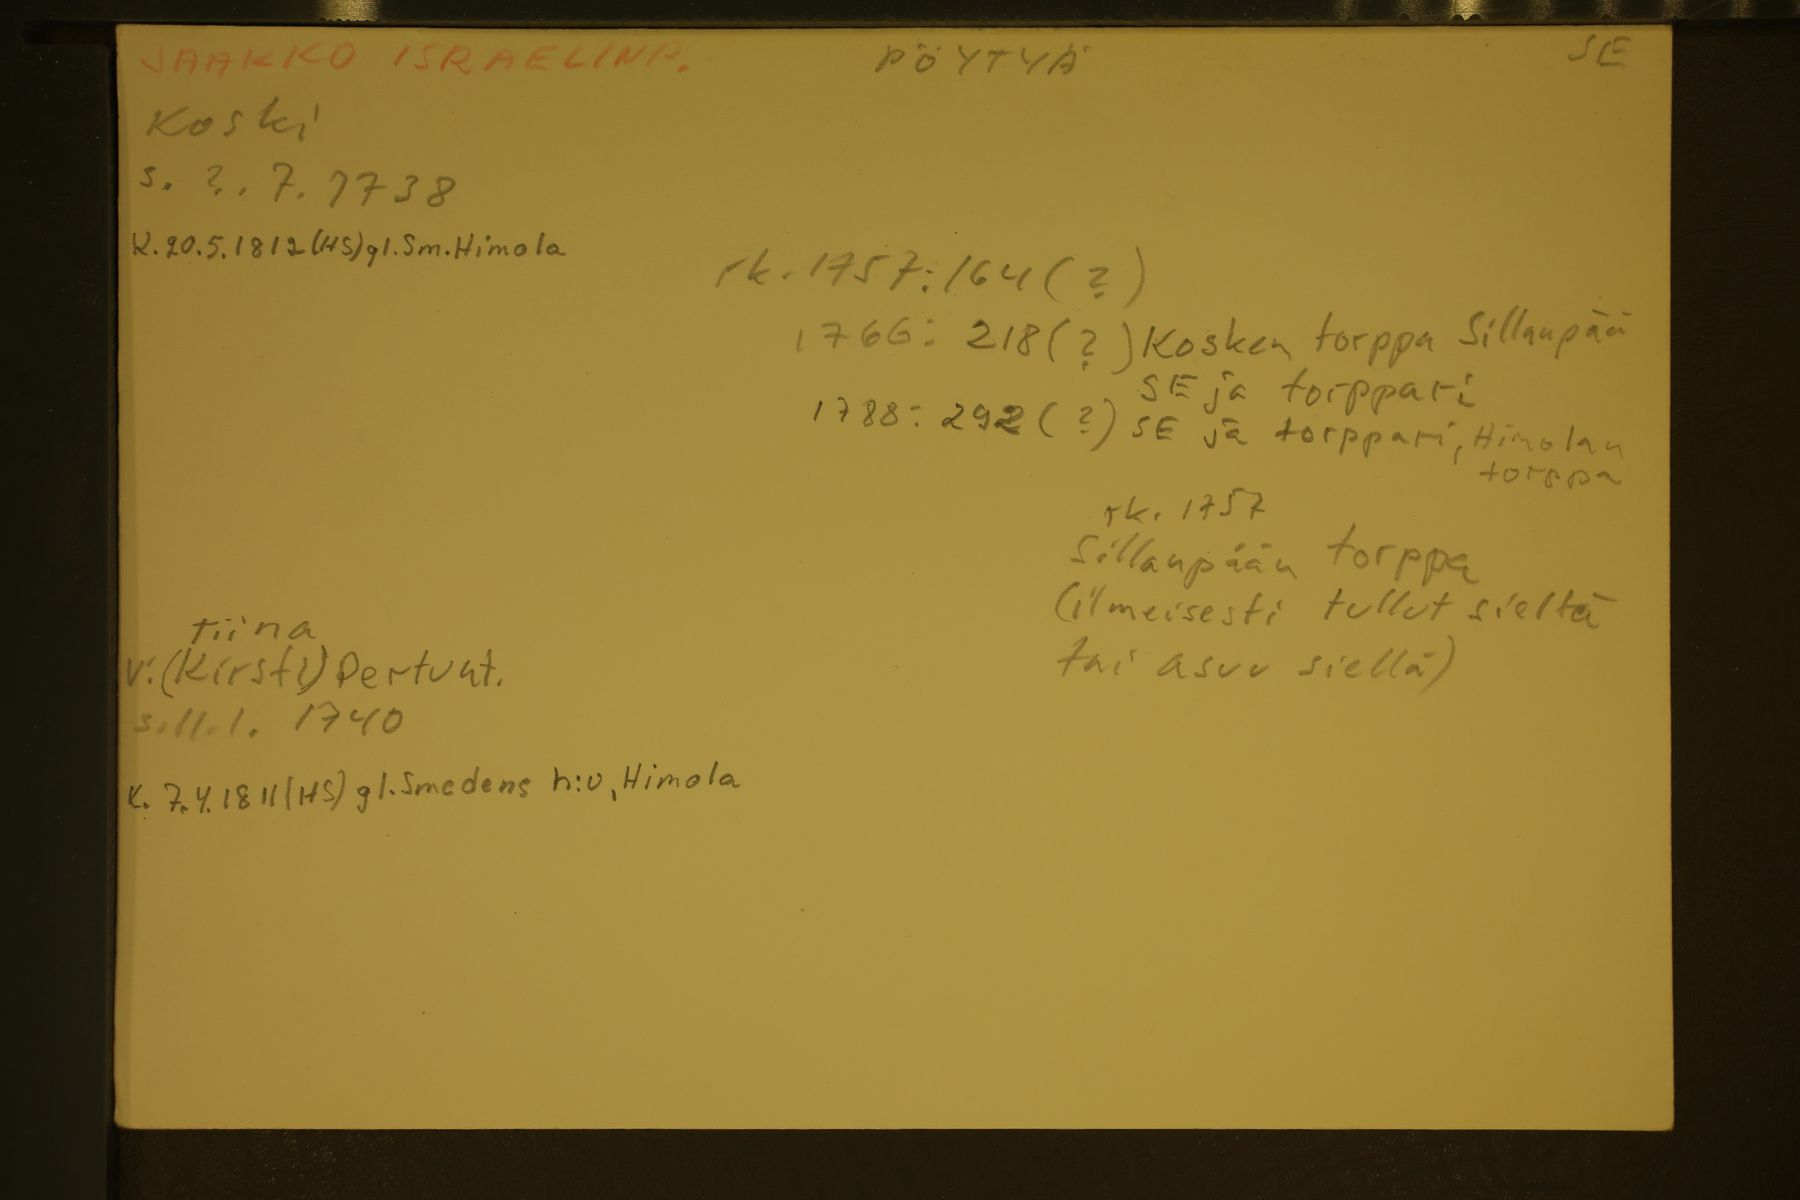 JAAKKO ISRAELINP. PÖYTYÄ SE
Koski
s. ?. 7. 1738
K. 20.5.1812 (HS) gl. Sm. Himola
rk. 1757: 164 (?)
1766: 218 (?) Kosken torppa Sillanpää
SE ja torppari
1788: 292 (?) SE ja torppari, Himolan
torppa
rk. 1757
Sillanpään torppa
(ilmeisesti tullut sieltä
tai asuu siellä)
Tiina
v: (Kirsti) Pertunt.
s. 11.1. 1740
K. 7.4.1811 (HS) gl. Smedens h:u, Himola